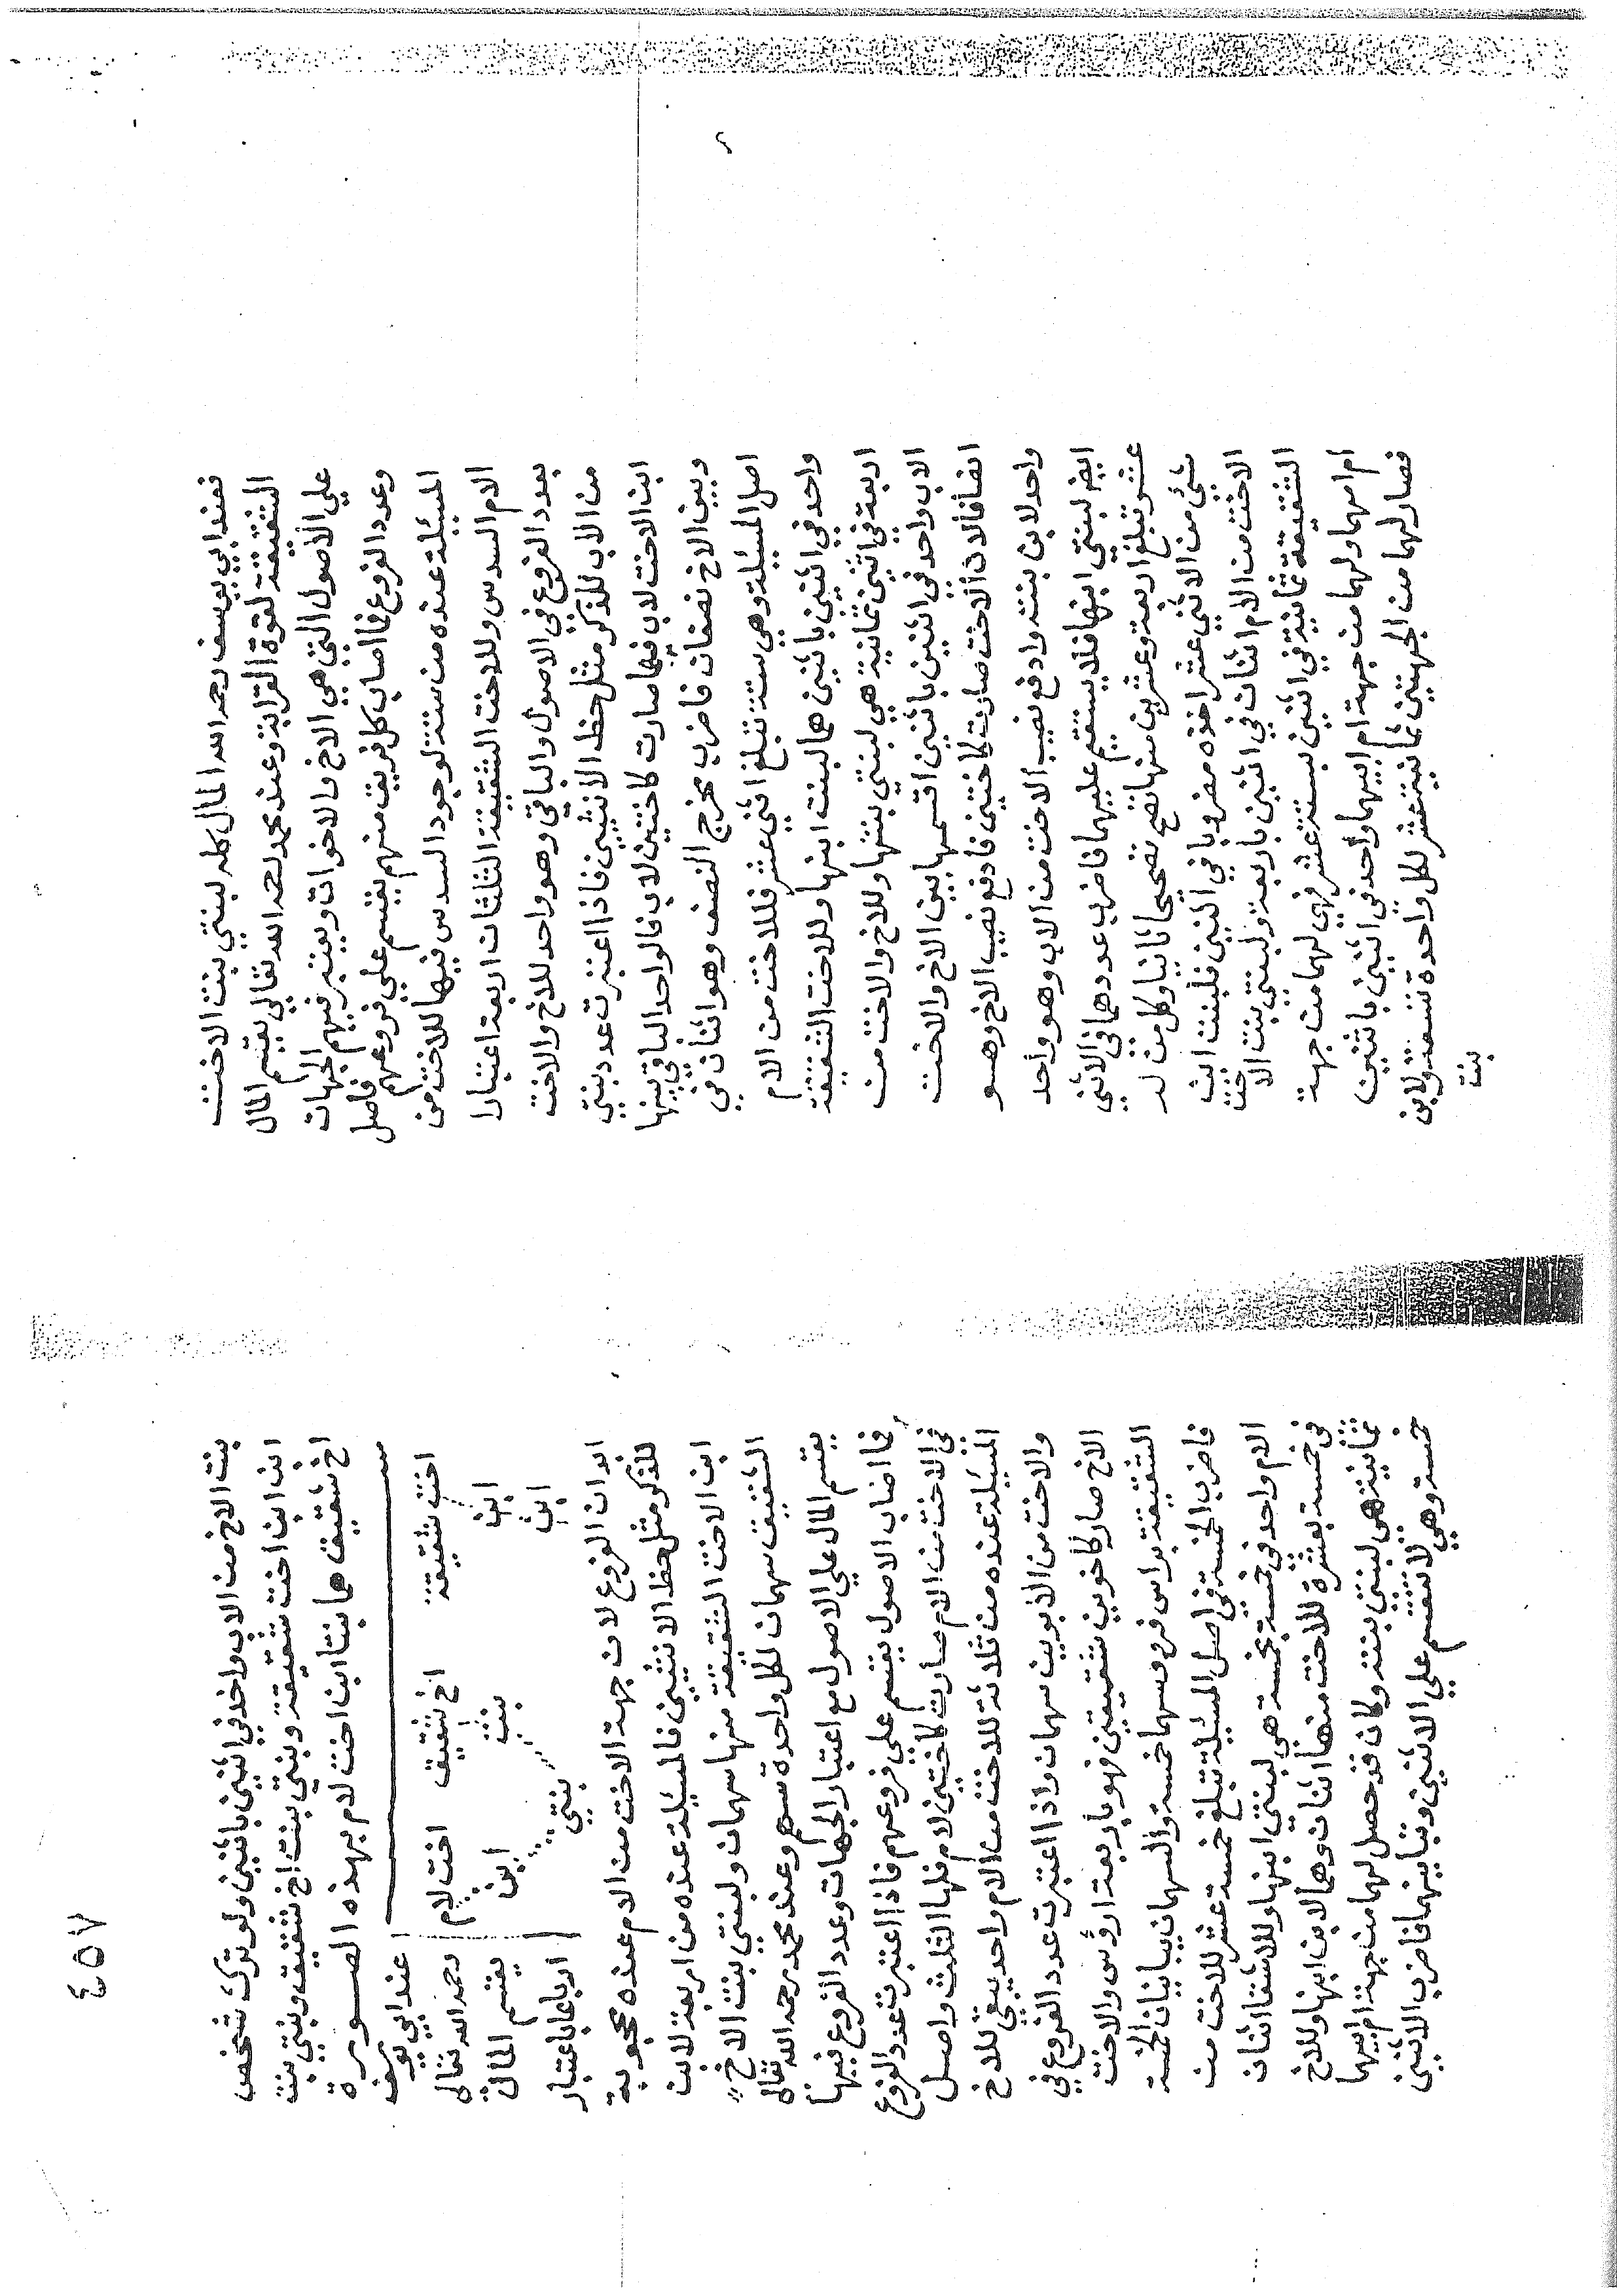 فعند ابي يوسف رحمه الله المال كله لبنتي بنت الاخت
الشقيقة لقوة القرابة وعند محمد رحمه الله تعالى يقسم المال
علي الأصول التي هي الاخ والاخوات ويعتبر فيهم الجهات
وعدد الفروع فما اصاب كل فريق منهم يقسم علي فروعهم فاصل
المسئلة عنده من ستة لوجود السدس فيها للاخت من
الام السدس وللاخت الشقيقة الثلثان اربعة اعتبارا
بعدد الفروع في الاصول والباقي وهو واحد للاخ والاخت
من الاب للذكر مثل حظ الانثيين فاذا اعتبرت عدد بنتي
ابن الاخت لاب فيها صارت كاختين لاب فالواحد الباقي بينها
وبين الاخ نصفان فاضرب مخرج النصف وهو اثنان في
اصل المسئلة وهي ستة تبلغ اثني عشر فللاخت من الام
واحد في اثنين باثنين هما لبنت ابنها وللاخت الشقيقة
اربعة في اثنين ثمانية هي لبنتي بنتها وللاخ والاخت من
الاب واحد في اثنين باثنين اقسمها بين الاخ والاخت
انصافا لان الاخت صارت كاختين فادفع نصيب الاخ وهو
واحد لابن بنته وادفع نصيب الاخت من الاب وهو واحد
ايضا لبنتي ابنها فلا يستقيم عليهما فاضرب عددهما في الاثني
عشر تبلغ اربعة وعشرين منها تصح تصحيحا ثانيا وكل من له
شئ من الاثني عشر اخذه مضروبا في اثنين فلبنت ابن
الاخت من الام اثنان في اثنين باربعة ولبنتي بنت الاخت
الشقيقة ثمانية في اثنين بستة عشر فهي لهما من جهة
ام امهما ولهما من جهة ام ابيهما واحد في اثنين باثنين
فصار لهما من الجهتين ثمانية عشر لكل واحدة تسعة ولابن
بنت
٤٥٧
بنت الاخ من الاب واحد في اثنين باثنين ولو ترك شخص
ابن ابن اخت شقيقة وبنتي بنت اخ شقيق وبنتي بنت
اخ شقيق هما بنتا ابن اخت لام بهذه الصورة
عند ابي يوسف
اخت شقيقة اخ شقيق اخت لام رحمه الله تعالى
ابن بنت ابن يقسم المال
ابن بنتي ارباعا باعتبار
ابدان الفروع لان جهة الاخت من الام عنده محجوبة
للذكر مثل حظ الانثيين فالمسئلة عنده من اربعة لابن
ابن الاخت الشقيقة منها سهمان ولبنتي بنت الاخ
الشقيق سهمان لكل واحدة سهم وعند محمد رحمه الله تعالى
يقسم المال علي الاصول مع اعتبار الجهات وعدد الفروع فيها
فما اصاب الاصول يقسم علي فروعهم فاذا اعتبرت عدد الفروع
في الاخت من الام صارت كاختين لام فلها الثلث واصل
المسئلة عنده من ثلاثة للاخت من الام واحد يبقي للاخ
والاخت من الابوين سهمان واذا اعتبرت عدد الفروع في
الاخ صار كأخوين شقيقين فهو بأربعة ارؤس والاخت
الشقيقة براس فرؤسهما خمسة والسهمان يباينان الخمسة
فاضرب الخمسة في اصل المسئلة تبلغ خمسة عشر للاخت من
الام واحد في خمسة بخمسة هي لبنتي ابنها وللاشقا اثنان
في خمسة بعشرة للاخت منها اثنان وهما لابن ابنها وللاخ
ثمانية هي لبنتي بنته وكان قد حصل لهما من جهة ام ابيهما
خمسة وهي لا تنقسم علي الاثنين وتباينهما فاضرب الاثنين